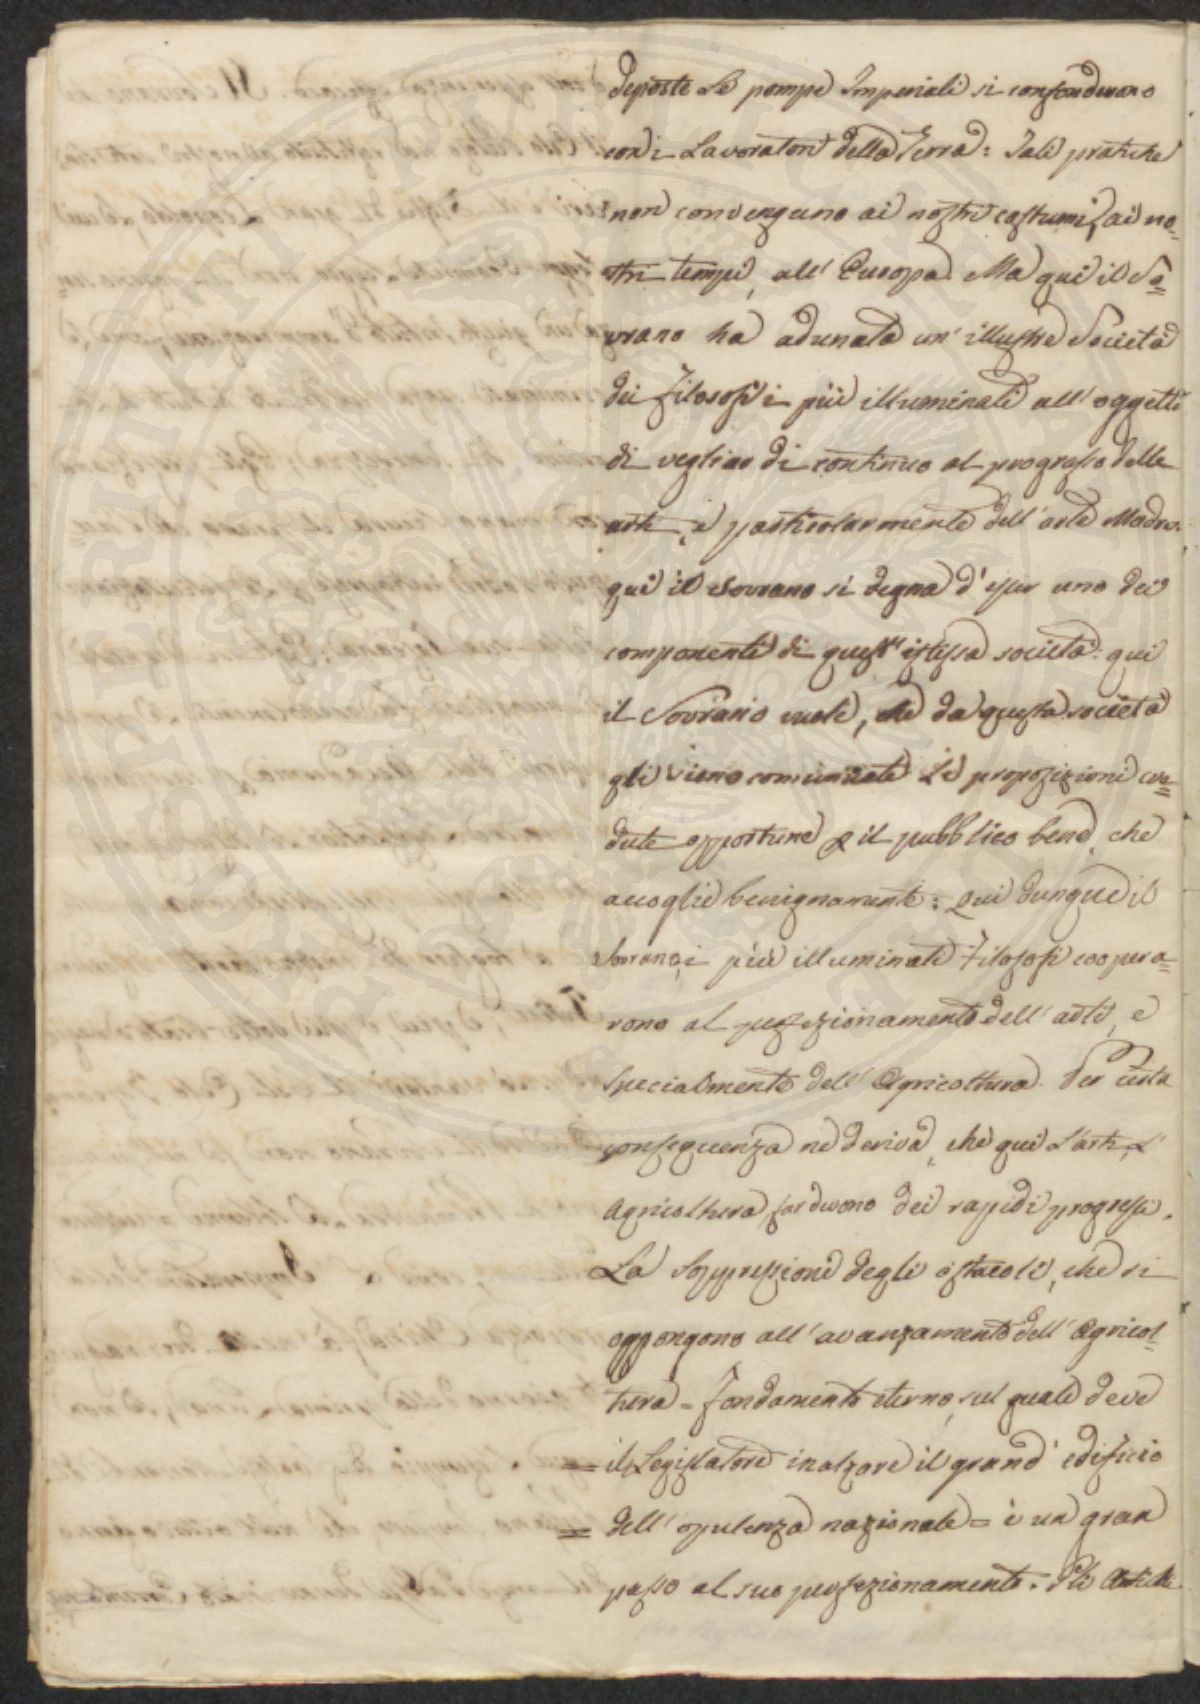 deposte le pompe Imperiali si confondevano
con i Lavoratori della Terra: Tali pratiche
non convengano ai nostri costumi, ai no=
stri tempi, all' Europa. Ma qui il So=
vrano ha adunata un' illustre Società
dei Filosofi i più illuminati all' oggetto
di vegliare di continuo al progresso delle
arti, e particolarmente dell' arte Madre.
qui il Sovrano si degna d' esser uno dei
componenti di quest' istessa società: qui
il Sovrano vuole, che da questa società
gli siano comunicate le proposizioni cre=
dute opportune p il pubblico bene, che
accoglie benignamente: Qui dunque il
Sovrano, i più illuminati Filosofi coopera=
rono al perfezionamento dell' arti, e
specialmente dell' Agricoltura. Per certa
conseguenza ne deriva, che qui l'arti, l'
Agricoltura, far devono dei rapidi progressi.
La Soppressione degli ostacoli, che si
oppongono all' avanzamento dell' Agricol=
tura = fondamento eterno, sul quale deve
= il Legislatore inalzare il grand' edificio
= dell' opulenza nazionale = è un gran
passo al suo perfezionamento: Gli